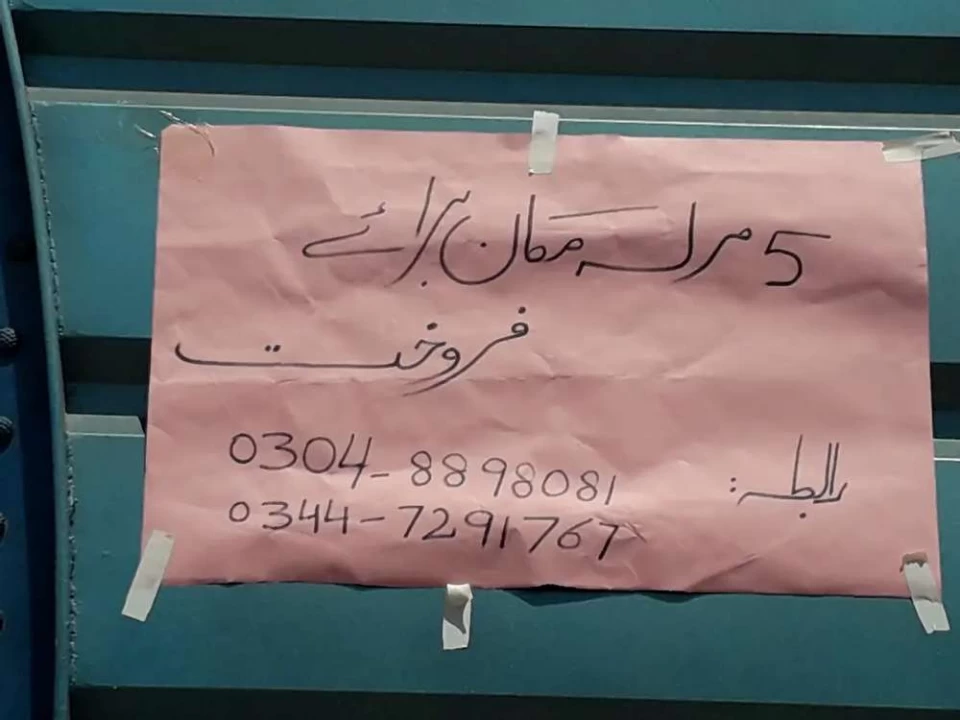 5 مرلہ مکان برائے
فروخت
رابطہ: 0304-8898081
0344-7291767